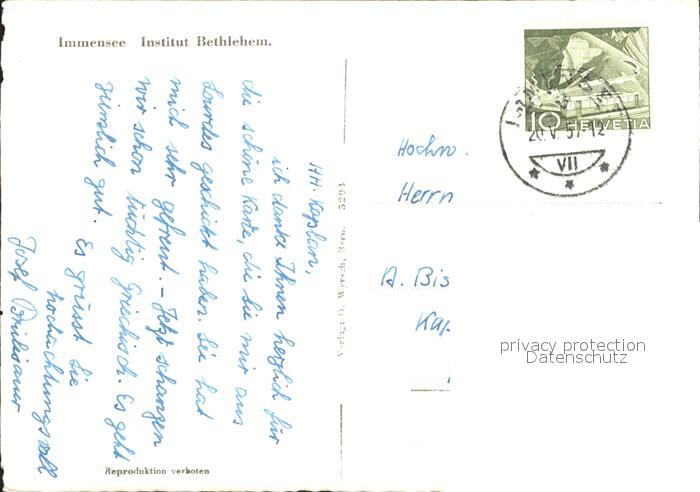 Immensee Institut Bethlehem.
HH. Kaplan,
ich danke Ihnen herzlich für
die schöne Karte, die Sie mir aus
Lourdes geschickt haben. Sie hat
mich sehr gefreut. - Jetzt schanzen
wir schon tüchtig Griechisch. Es geht
ziemlich gut.
Es grüsst Sie
hochachtungsvoll
Josef
Reproduktion verboten
Wyrsch, Bern. 5294
10 HELVETIA
20.V.57-12
VII
Hochw.
Herrn
A. Bis
Kap
privacy protection
Datenschutz